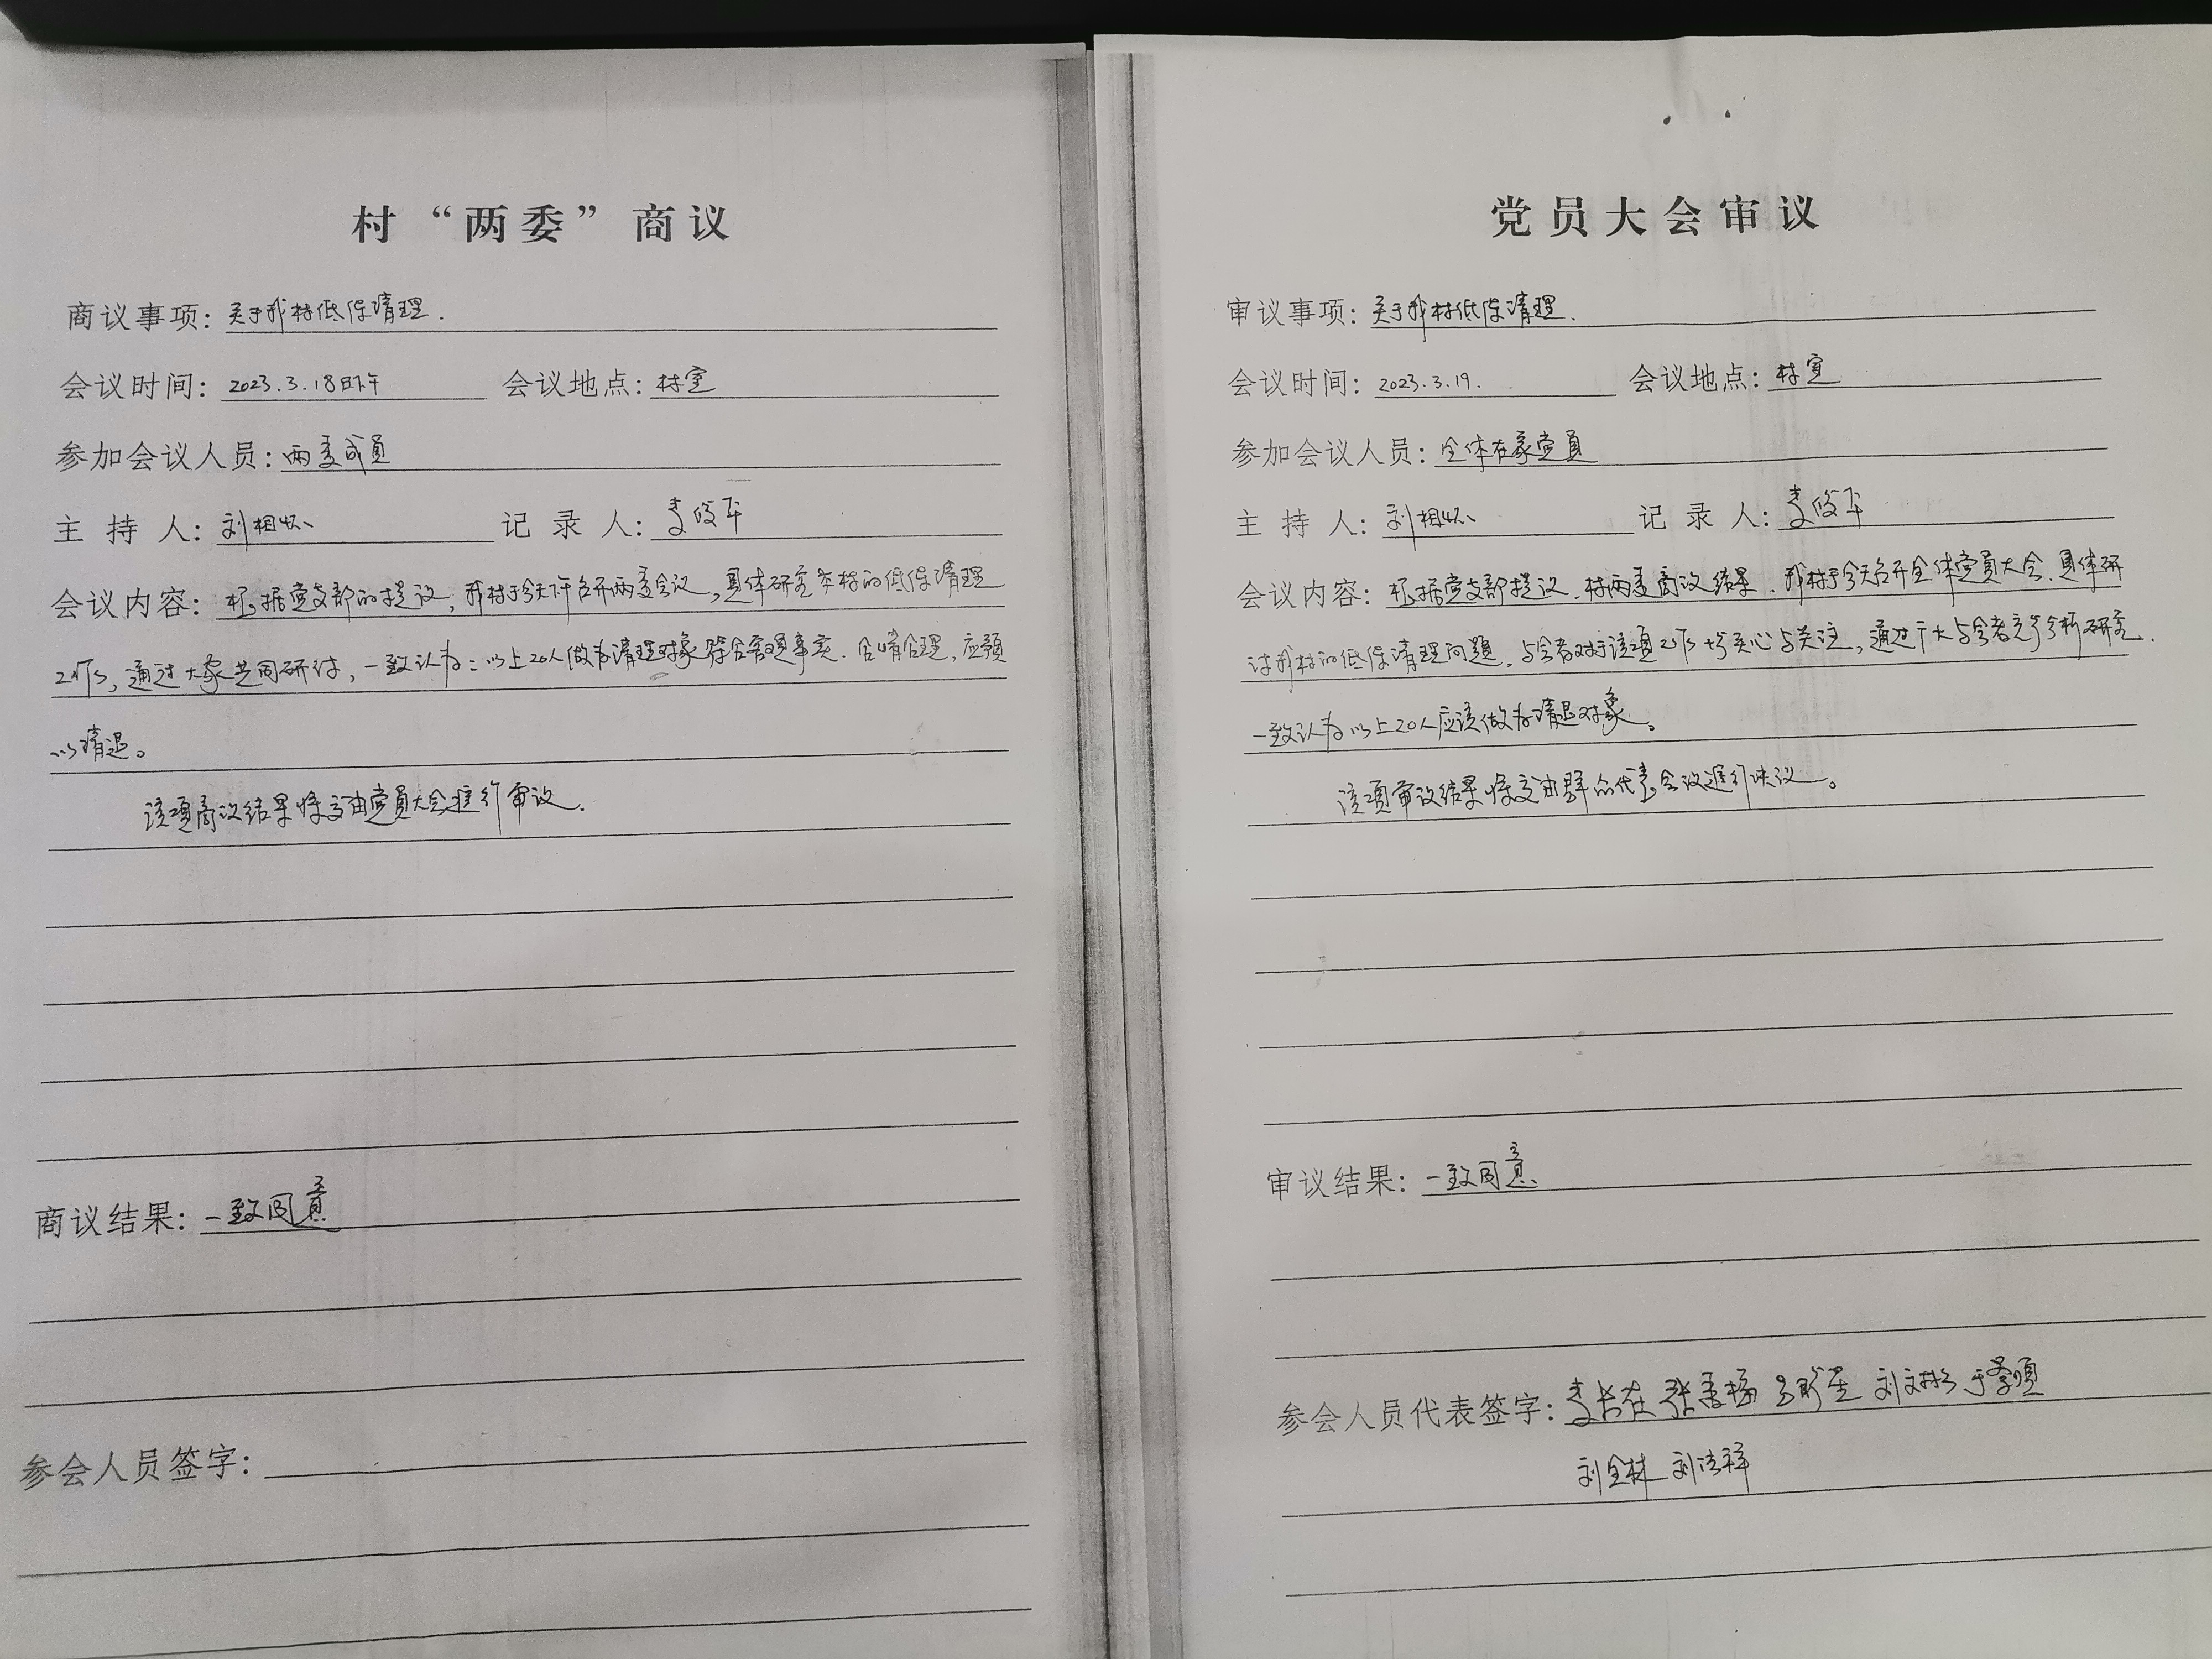 村“两委”商议
商议事项：关于我村低保清理.
会议时间：2023.3.18日下午 会议地点：村室
参加会议人员：两委成员
主持人：刘相怀 记录人：李俊平
会议内容：根据党支部的提议，我村于今天下午召开两委会议，具体研究本村的低保清理
工作，通过大家共同研讨，一致认为：以上20人做为清理对象符合客观事实.合情合理，应予
以清退。
该项商议结果将交由党员大会进行审议.
商议结果：一致同意
参会人员签字：
党员大会审议
审议事项：关于我村低保清理.
会议时间：2023.3.19. 会议地点：村室
参加会议人员：全体在家党员
主持人：刘相怀 记录人：李俊平
会议内容：根据党支部提议.村两委商议结果.我村于今天召开全体党员大会.具体研
讨我村的低保清理问题，与会者对于该项工作十分关心与关注，通过广大与会者充分分析研究.
一致认为以上20人应该做为清退对象。
该项审议结果将交由群众代表会议进行决议。
审议结果：一致同意
参会人员代表签字：李长在 张秀 刘文彬
刘全林 刘法祥